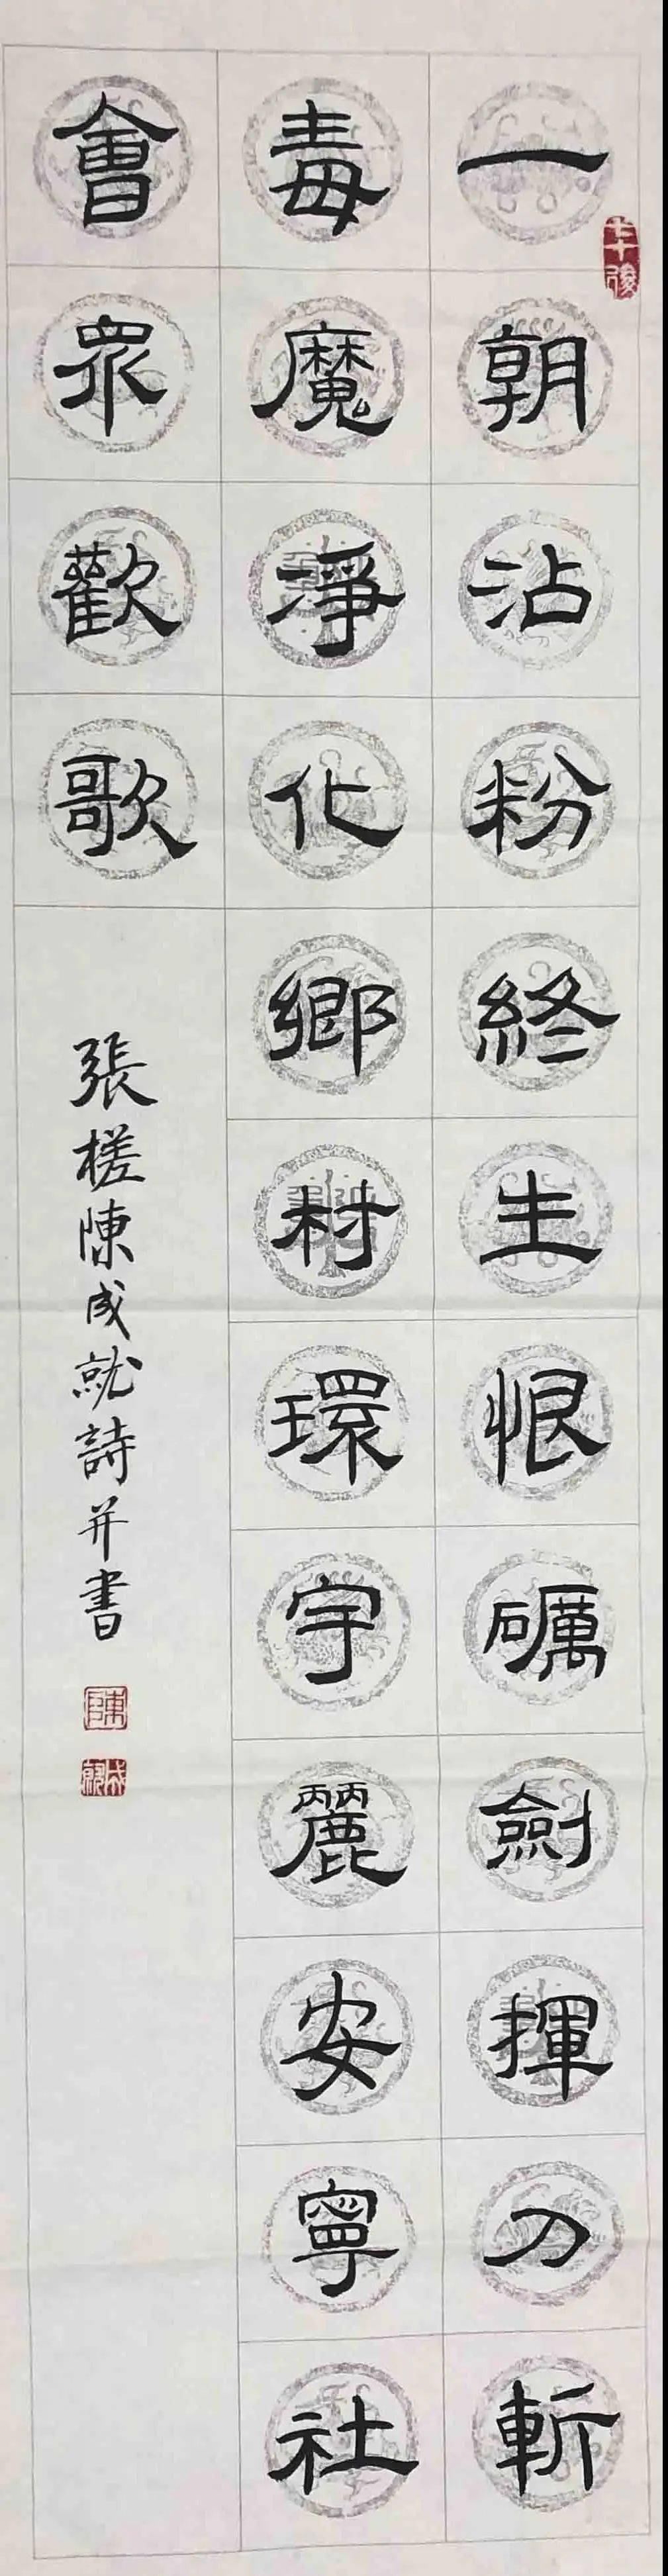 一朝沾粉終生恨礪劍揮刀斬
毒魔淨化鄉村環宇麗安寧社
會眾歡歌
張槎陳成就詩并書
陳
成就